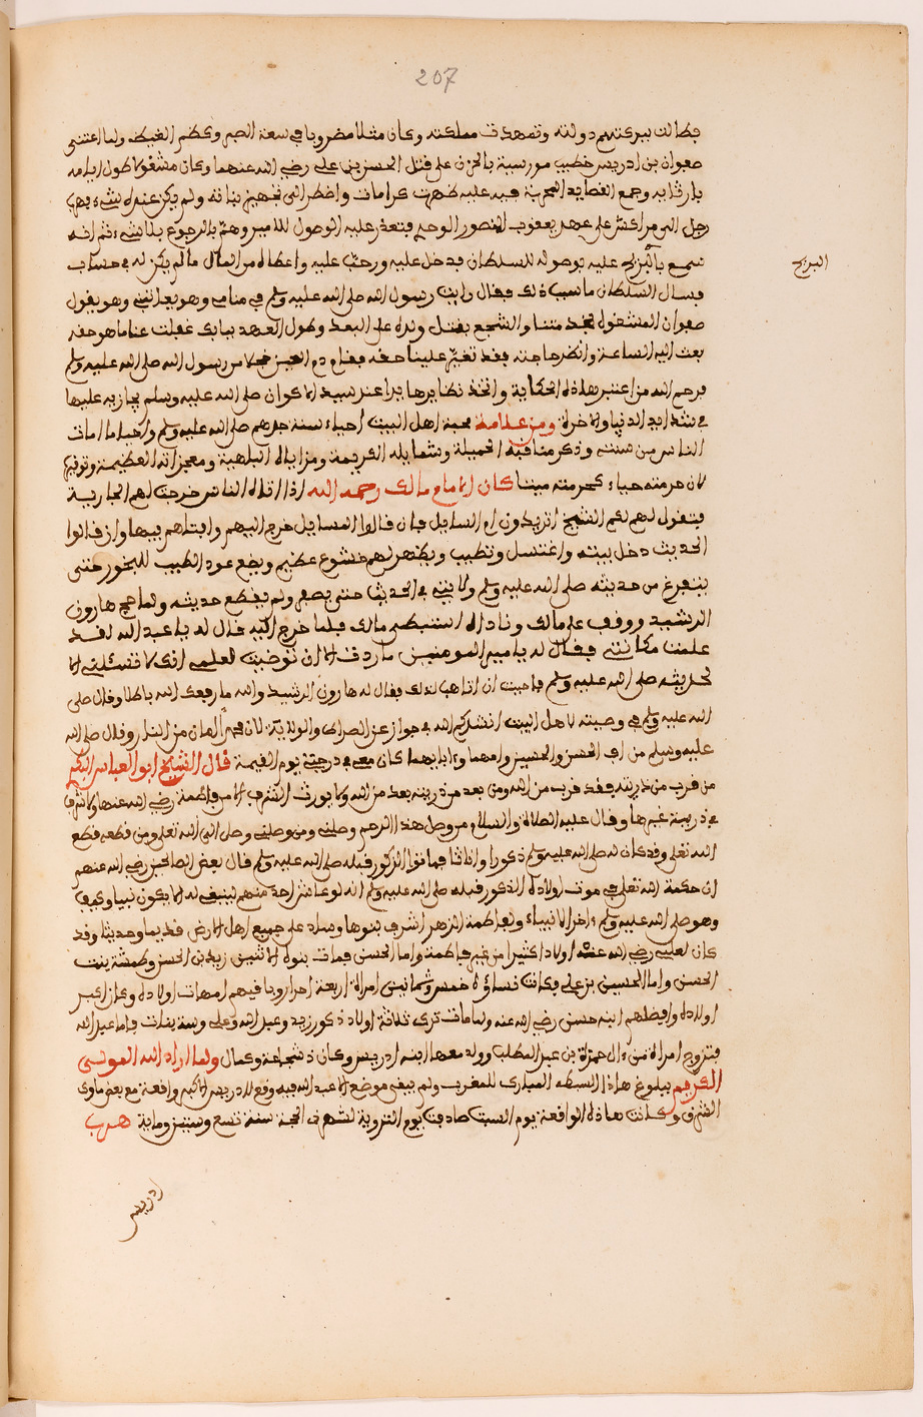 207
فطالت ببركتهم دولته وتمهدت مملكته وكان مثلا مضروبا في سعة الصبر وكظم الغيظ ولما اعتنى
صفوان بن ادريس خطيب مورسية بالحزن على قتل الحسين بن علي رضي الله عنهما وكان مشغولا طول ايامه
بارثايه وجمع القصايد العجيبة فيه عليه ظهرت كرامات واضطر الى تجهيز بناته ولم يكن عنده شيء
رجل الى مراكش على عهد يعقوب المنصور الموحد فتعذر عليه الوصول للامير وهم بالرجوع بلا شيء ثم انه
سمع بالبريح عليه بوصوله للسلطان فدخل عليه ورحب عليه واعطاه من المال ما لم يكن له في حساب
البريح
فسال السلطان ما سبب ذلك فقال رايت رسول الله صلى الله عليه وسلم في منامي وهو يعاتبني وهو يقول
صفوان المشغول بمدحتنا والتفجع بقتل ولده على البعد وطول العهد ببابك غفلت عنا ما هو حقه
بعث اليه الساعة وانظر حاجته فقد تعين علينا حقه فقام
فرحم الله من اعتبر بهذه الحكاية واتخذ نظايرها يدا عند سيد الاكوان صلى الله عليه وسلم يجازيه عليها
في شدايد الدنيا والاخرة ومن علامة محبة اهل البيت احياء سنة جدهم صلى الله عليه وسلم واحيا ما امات
الناس من سنته وذكر مناقبه الجميلة وشمايله الكريمة ومزاياه الباهية ومعجزاته العظيمة وتوقيره
لان حرمته حياء كحرمته ميتا كان الامام مالك رحمه الله اذا اتاه الناس خرجت لهم الجارية
فتقول لهم يقول لكم الشيخ اتريدون ام المسايل فان قالوا المسايل خرج اليهم وافتاهم فيها وان قالوا
الحديث دخل بيته واغتسل وتطيب ويظهر لهم خشوع عظيم ويضع عود الطيب للبخور حتى
يتفرغ من حديثه صلى الله عليه وسلم ولا يتحرك في الحديث حتى يصفى ولم يقطع حديثه ولما حج هارون
الرشيد ووقف على مالك وناداه استبطى مالك فلما خرج اليه قال له يا عبد الله لقد
علمت مكانتي فقال له يا مير المومنين ما ردت الا ان توضيت لعلمي انك لا تسئلني الا
لحديثه صلى الله عليه وسلم فاحببت ان اتاهب لذلك فقال له هارون الرشيد والله ما رفعك الله باطلا وقال صلى
الله عليه وسلم في وصيته لاهل البيت انشدكم الله في جواز عن الصراط والولاية لال محمد امان من النار وقال صلى الله
عليه وسلم من احب الحسن والحسين وامهما واباهما كان معي في درجتي يوم القيمة قال الشيخ ابو العباس البكر
من قرب من ذريته فقد قرب من الله ومن بعد من ذريته بعد من الله ولا يورث الشرف الا من فاطمة رضي الله عنها ولا شرف
في ذرية غيرها وقال عليه الصلاة والسلام من وصل هذا الرحم وصلني ومن وصلني وصل الى الله تعلى ومن قطعه قطع
الله تعلى وقد كان له صلى الله عليه وسلم ذكورا واناثا فماتوا الذكور قبله صلى الله عليه وسلم قال بعض الصالحين رضي الله عنهم
ان حكمة الله تعلى في موت اولاده الذكور قبله صلى الله عليه وسلم انه لو عاش احد منهم لينبغي له ان يكون نبيا وكيف
وهو صلى الله عليه وسلم ءاخر الانبياء وفاطمة الزهرا اشرف بنوها وساد على جميع اهل الارض قديما وحديثا وقد
كان لعلي رضي الله عنه اولادا كثيرا من غير فاطمة واما الحسن فمات بنوه الا اثنين زيد بن الحسن وطمشة بنت
الحسن واما الحسين بن علي فكانت نساؤه خمس وثمانين امراة اربعة احرار وباقيهم امهات اولاده وكان اكبر
اولاده وافضلهم ابنه حسن رضي الله عنه ولما مات ترك ثلاثة اولاد ذكور زيد وعبد الله وعلى وستة بنات فاما عبد الله
فتزوج امراة من ءال حمزة بن عبد المطلب وولد معها ابنه ادريس وكان ذ شجاعة وكمال ولما اراد الله المولى
الكريم ببلوغ هاذا السبط المبارك للمغرب ولم يبقى موضع الا عبد الله فيه وقع لادريس الاكبر واقعة مع بعض ملوك
الشرق وكانت هاذه الواقعة يوم السبت صادفت يوم التروية لشهر ذ الحجة سنة تسع وستين ومايه هرب
ادريس